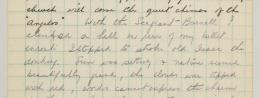 church will come the quiet chimes of the
"Angelus". With the Sergeant-Burrell I
climbed a hill in view of my billet
I stopped to stroke old Isaac the
donkey. Sun was setting & nature seemed
beautifully, the clouds were tipped
with red, words cannot express the charm